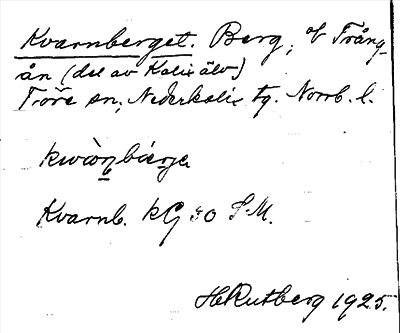 Kvarnberget. Berg, v Trång-
ån (del av Kalix älv)
Töre sn, Nederkalix tg. Norrb. l.
Kvarnb. kG 50 S.M.
H Rutberg 1925.